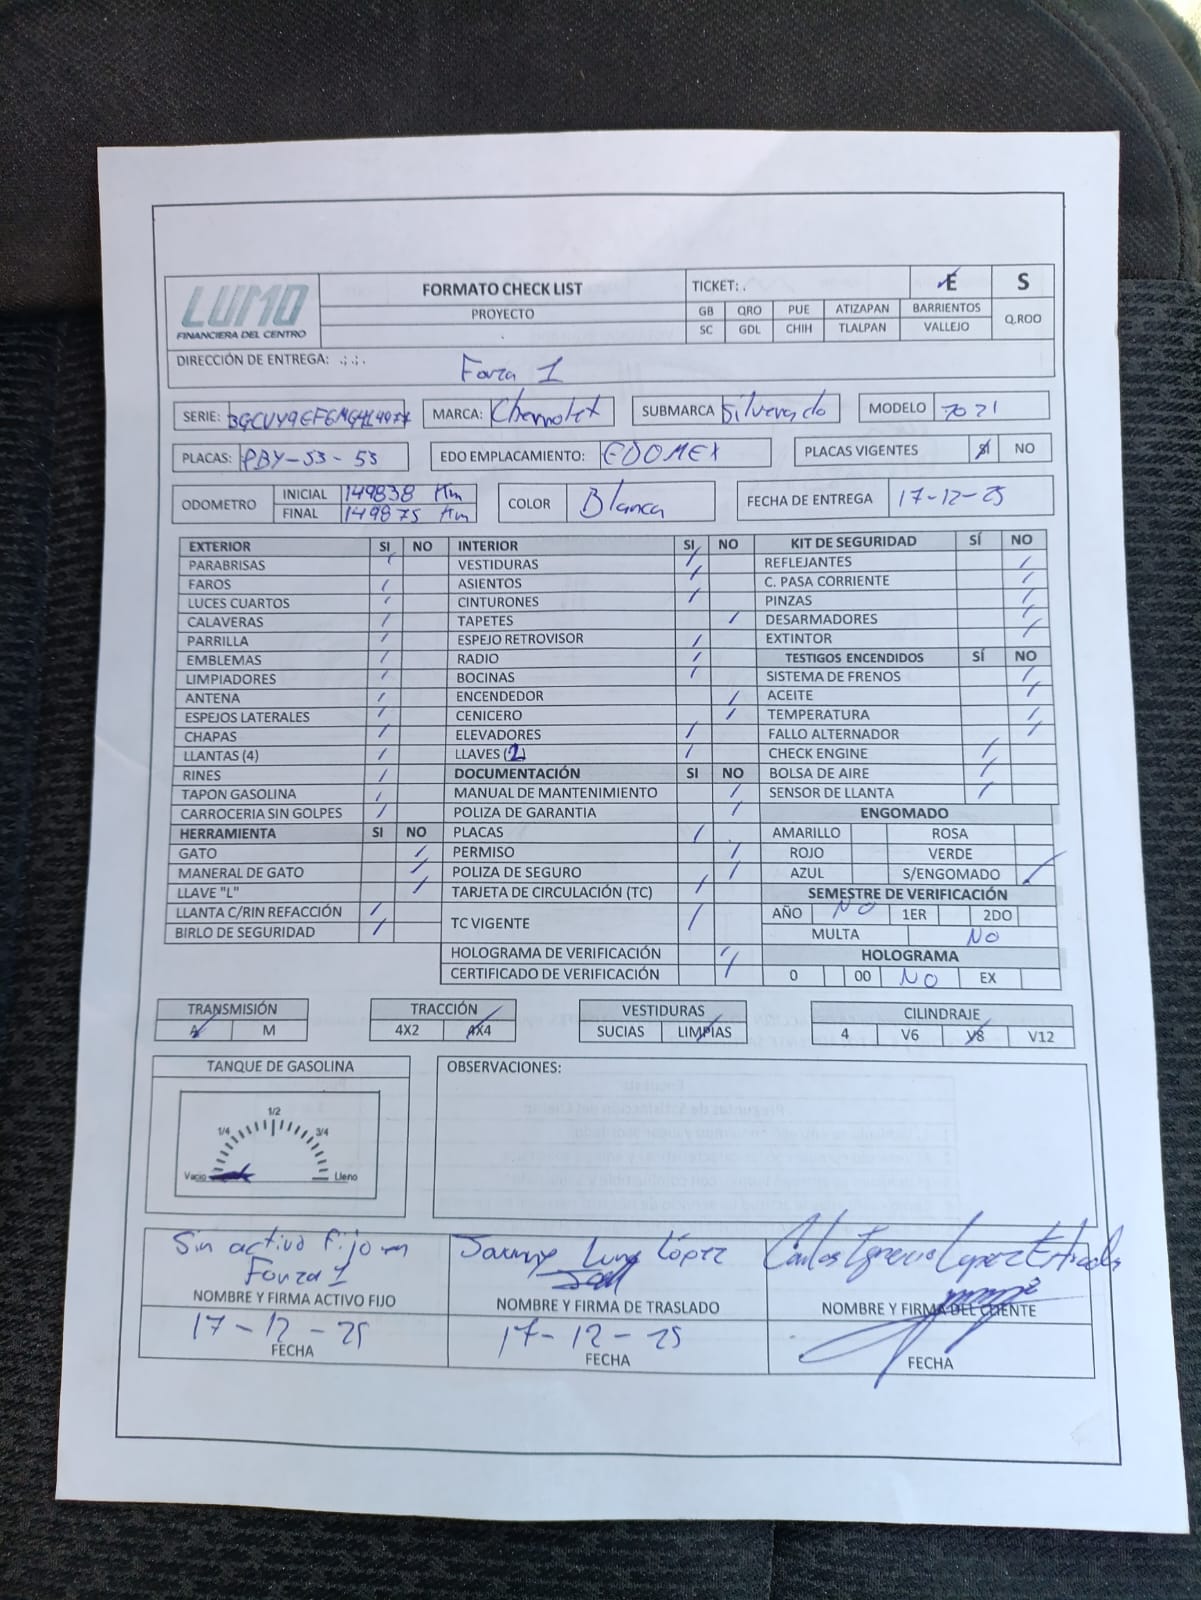 LUMO
FINANCIERA DEL CENTRO
FORMATO CHECK LIST
PROYECTO
TICKET: .
E
S
GB QRO PUE ATIZAPAN BARRIENTOS
SC GDL CHIH TLALPAN VALLEJO
Q.ROO
DIRECCIÓN DE ENTREGA: .;.;.
Forza 1
SERIE:
MARCA: Chevrolet
SUBMARCA Silverado
MODELO 2021
PLACAS: PBY-53-53
EDO EMPLACAMIENTO: EDOMEX
PLACAS VIGENTES SI NO
ODOMETRO
INICIAL 149838 Km
FINAL 149875 Km
COLOR Blanca
FECHA DE ENTREGA 17-12-25
EXTERIOR SI NO
PARABRISAS
FAROS
LUCES CUARTOS
CALAVERAS
PARRILLA
EMBLEMAS
LIMPIADORES
ANTENA
ESPEJOS LATERALES
CHAPAS
LLANTAS (4)
RINES
TAPON GASOLINA
CARROCERIA SIN GOLPES
HERRAMIENTA SI NO
GATO
MANERAL DE GATO
LLAVE "L"
LLANTA C/RIN REFACCIÓN
BIRLO DE SEGURIDAD
INTERIOR SI NO
VESTIDURAS
ASIENTOS
CINTURONES
TAPETES
ESPEJO RETROVISOR
RADIO
BOCINAS
ENCENDEDOR
CENICERO
ELEVADORES
LLAVES (1)
DOCUMENTACIÓN SI NO
MANUAL DE MANTENIMIENTO
POLIZA DE GARANTIA
PLACAS
PERMISO
POLIZA DE SEGURO
TARJETA DE CIRCULACIÓN (TC)
TC VIGENTE
HOLOGRAMA DE VERIFICACIÓN
CERTIFICADO DE VERIFICACIÓN
KIT DE SEGURIDAD SÍ NO
REFLEJANTES
C. PASA CORRIENTE
PINZAS
DESARMADORES
EXTINTOR
TESTIGOS ENCENDIDOS SÍ NO
SISTEMA DE FRENOS
ACEITE
TEMPERATURA
FALLO ALTERNADOR
CHECK ENGINE
BOLSA DE AIRE
SENSOR DE LLANTA
ENGOMADO
AMARILLO ROSA
ROJO VERDE
AZUL S/ENGOMADO
SEMESTRE DE VERIFICACIÓN
AÑO NO 1ER 2DO
MULTA NO
HOLOGRAMA
0 00 NO EX
TRANSMISIÓN
A M
TRACCIÓN
4X2 4X4
VESTIDURAS
SUCIAS LIMPIAS
CILINDRAJE
4 V6 V8 V12
TANQUE DE GASOLINA
1/2
1/4 3/4
Vacio Lleno
OBSERVACIONES:
Sin activo fijo en
Forza 1
NOMBRE Y FIRMA ACTIVO FIJO
17-12-25
FECHA
Luna López
NOMBRE Y FIRMA DE TRASLADO
17-12-25
FECHA
Carlos Ignacio Lopez Estrada
NOMBRE Y FIRMA DEL CLIENTE
FECHA